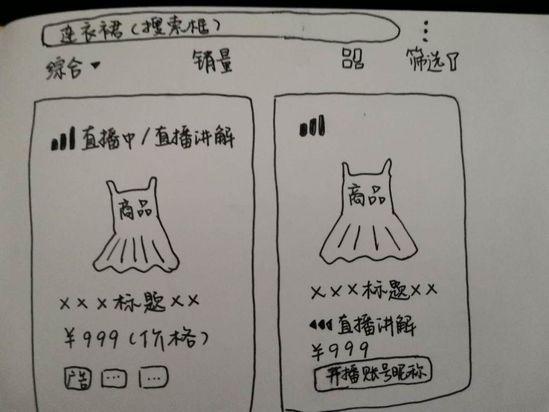 连衣裙(搜索框)
综合 销量 筛选
直播中/直播讲解
商品
×××标题××
¥999(价格)
广告 ... ...
商品
×××标题××
直播讲解
¥999
开播账号昵称